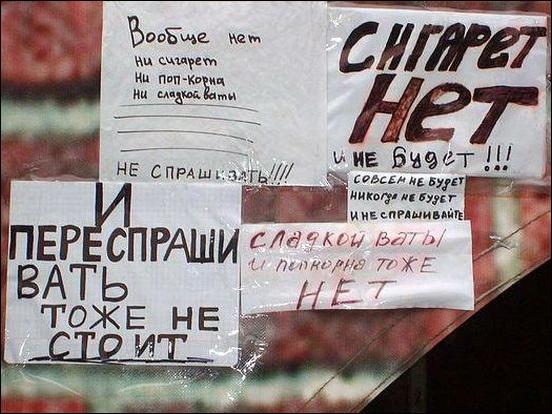 Вообще нет
ни сигарет
ни поп-корна
ни сладкой ваты
НЕ СПРАШИВАТЬ!!!!
СИГАРЕТ
НЕТ
И НЕ БУДЕТ !!!
СОВСЕМ НЕ БУДЕТ
НИКОГДА НЕ БУДЕТ
И НЕ СПРАШИВАЙТЕ
И
ПЕРЕСПРАШИ
ВАТЬ
ТОЖЕ НЕ
СТОИТ
СЛАДКОЙ ВАТЫ
И ПОПКОРНА ТОЖЕ
НЕТ